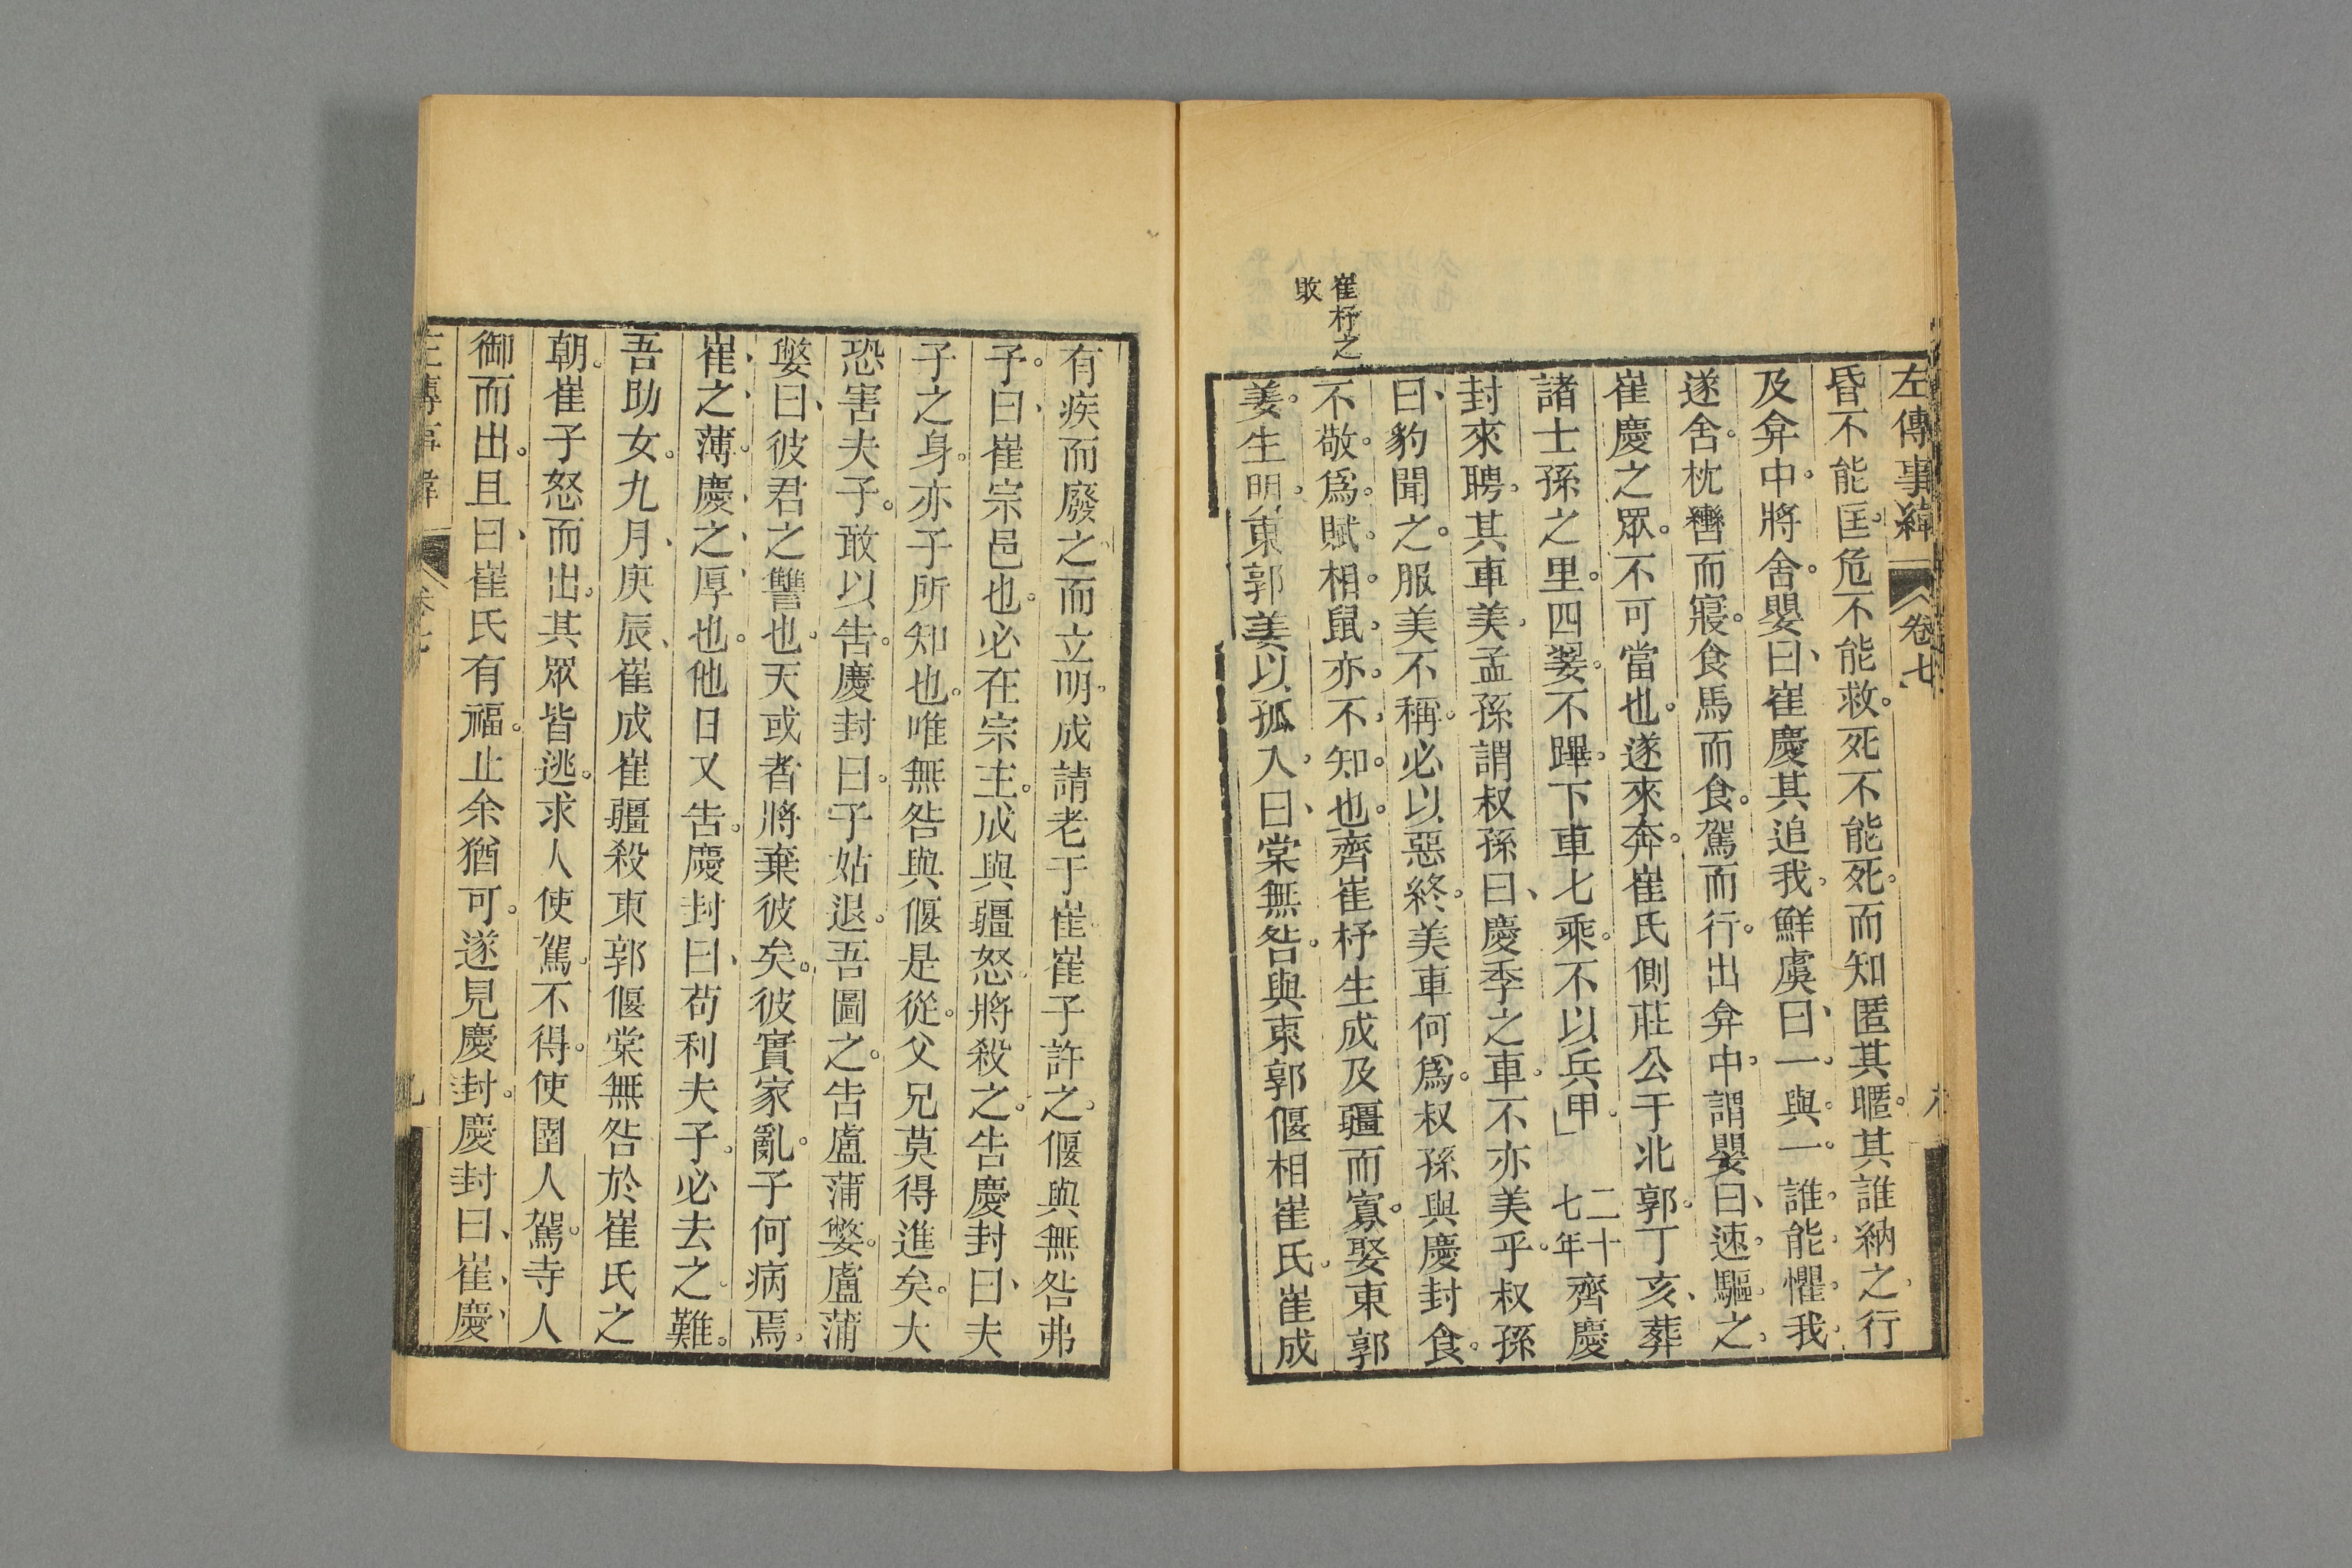 左傳事緯 卷七
昏不能匡。危不能救。死不能死。而知匿其暱。其誰納之。行
及弇中。將舍。嬰曰、崔慶其追我。鮮虞曰、一與一。誰能懼我。
遂舍。枕轡而寢。食馬而食。駕而行。出弇中。謂嬰曰、速驅之。
崔慶之眾。不可當也。遂來奔。崔氏側莊公于北郭。丁亥、葬
諸士孫之里。四翣。不蹕。下車七乘。不以兵甲。」 二十七年齊慶
封來聘。其車美。孟孫謂叔孫曰、慶季之車。不亦美乎。叔孫
曰、豹聞之。服美不稱。必以惡終。美車何爲。叔孫與慶封食。
不敬。爲賦相鼠。亦不知也。齊崔杼生成及疆而寡。娶東郭
姜。生明。東郭姜以孤入、曰棠無咎。與東郭偃相崔氏。崔成
崔杼之
敗
有疾而廢之。而立明。成請老于崔。崔子許之。偃與無咎弗
予。曰、崔宗邑也。必在宗主。成與疆怒。將殺之。告慶封曰、夫
子之身。亦子所知也。唯無咎與偃是從。父兄莫得進矣。大
恐害夫子。敢以告。慶封曰。子姑退。吾圖之。告盧蒲嫳。盧蒲
嫳曰、彼君之讐也。天或者將棄彼矣。彼實家亂。子何病焉。
崔之薄。慶之厚也。他日又告。慶封曰、苟利夫子。必去之。難。
吾助女。九月、庚辰、崔成崔疆殺東郭偃棠無咎於崔氏之
朝。崔子怒而出。其眾皆逃。求人使駕。不得。使圉人駕。寺人
御而出。且曰、崔氏有福。止余猶可。遂見慶封。慶封曰、崔慶
左傳事緯 卷七 九